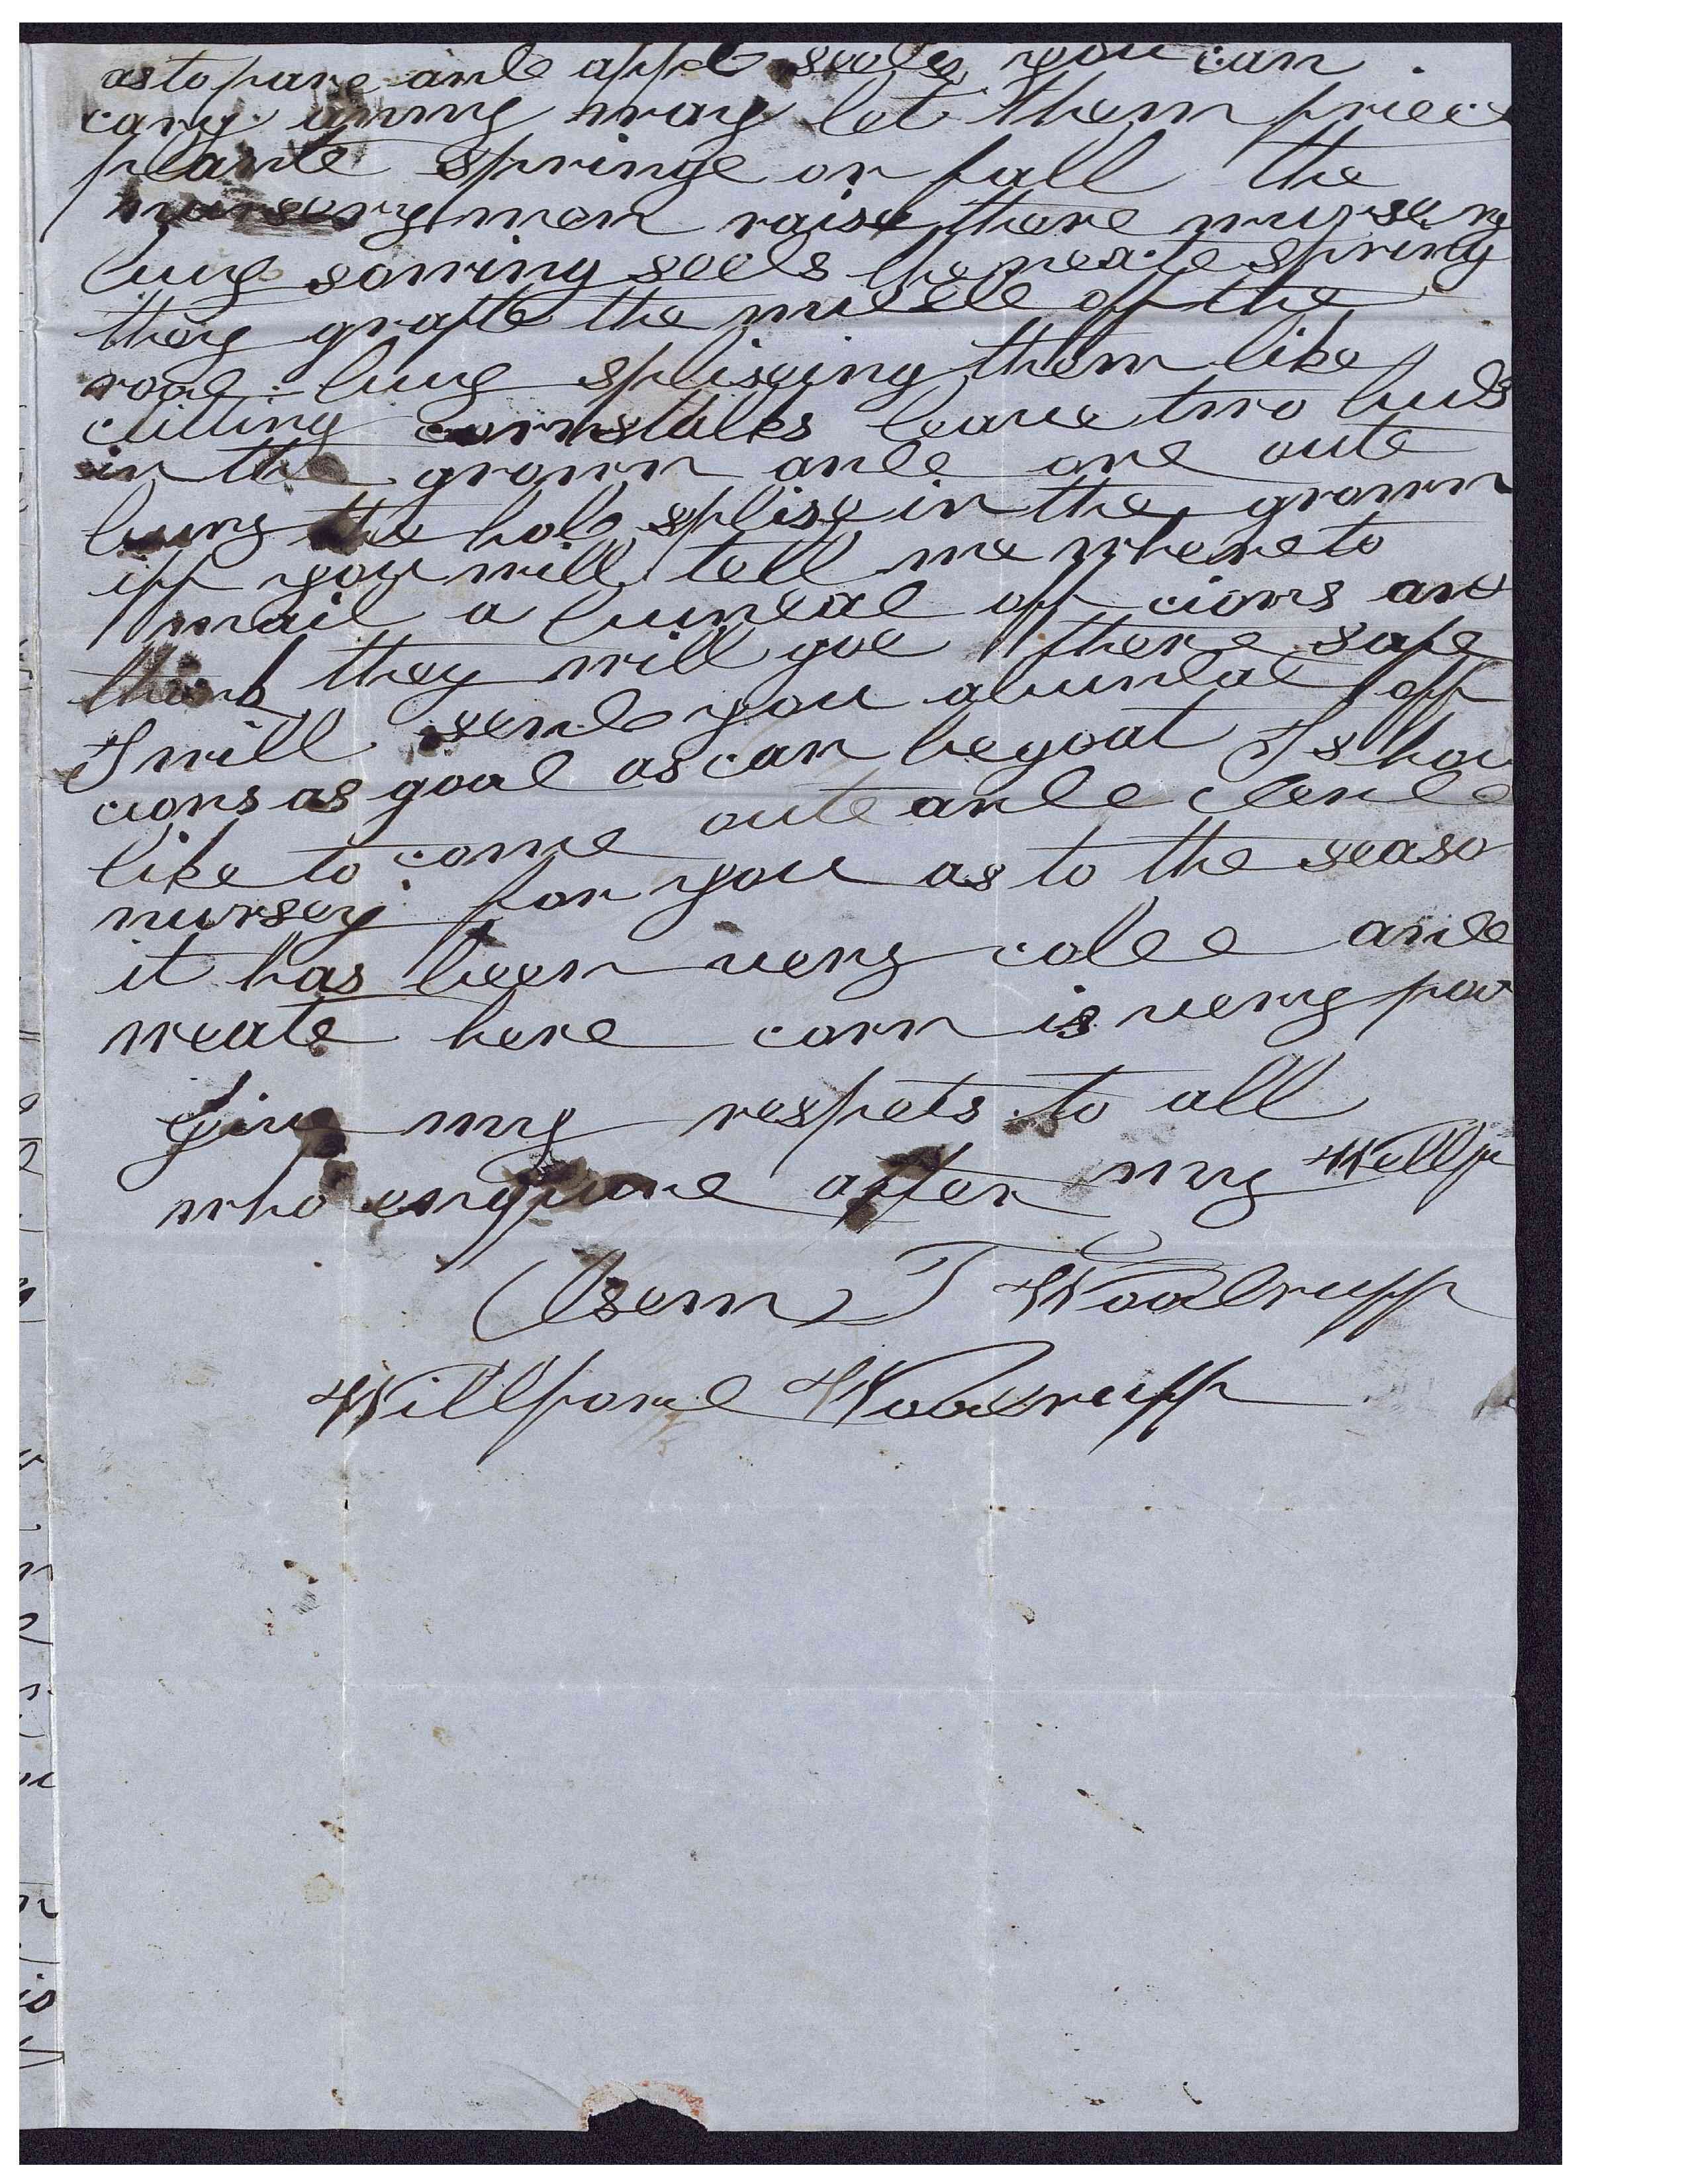 as to pare and appel seeds you can
cary anny way let them freeze
plante springe or fall the
nurserymen raise there nursery
buy sowing seeds the neate spring
they grafte the midele off the
roote buy splising them like
cutting cornstalks leave two buds
in the grown and one oute
bury the hole splise in the grown
iff you will tell me where to
mail a bundal off cions and
think they will goe there safe
I will send you a bundal off
cions as good as can be goat I shou
like to come oute and tend
nursery for you as to the seaso
it has been very colde and
weate here corn is very poo
give my respets to all
who enquire after my Wellfa
Osem T Woodruff
Willford Woodruff